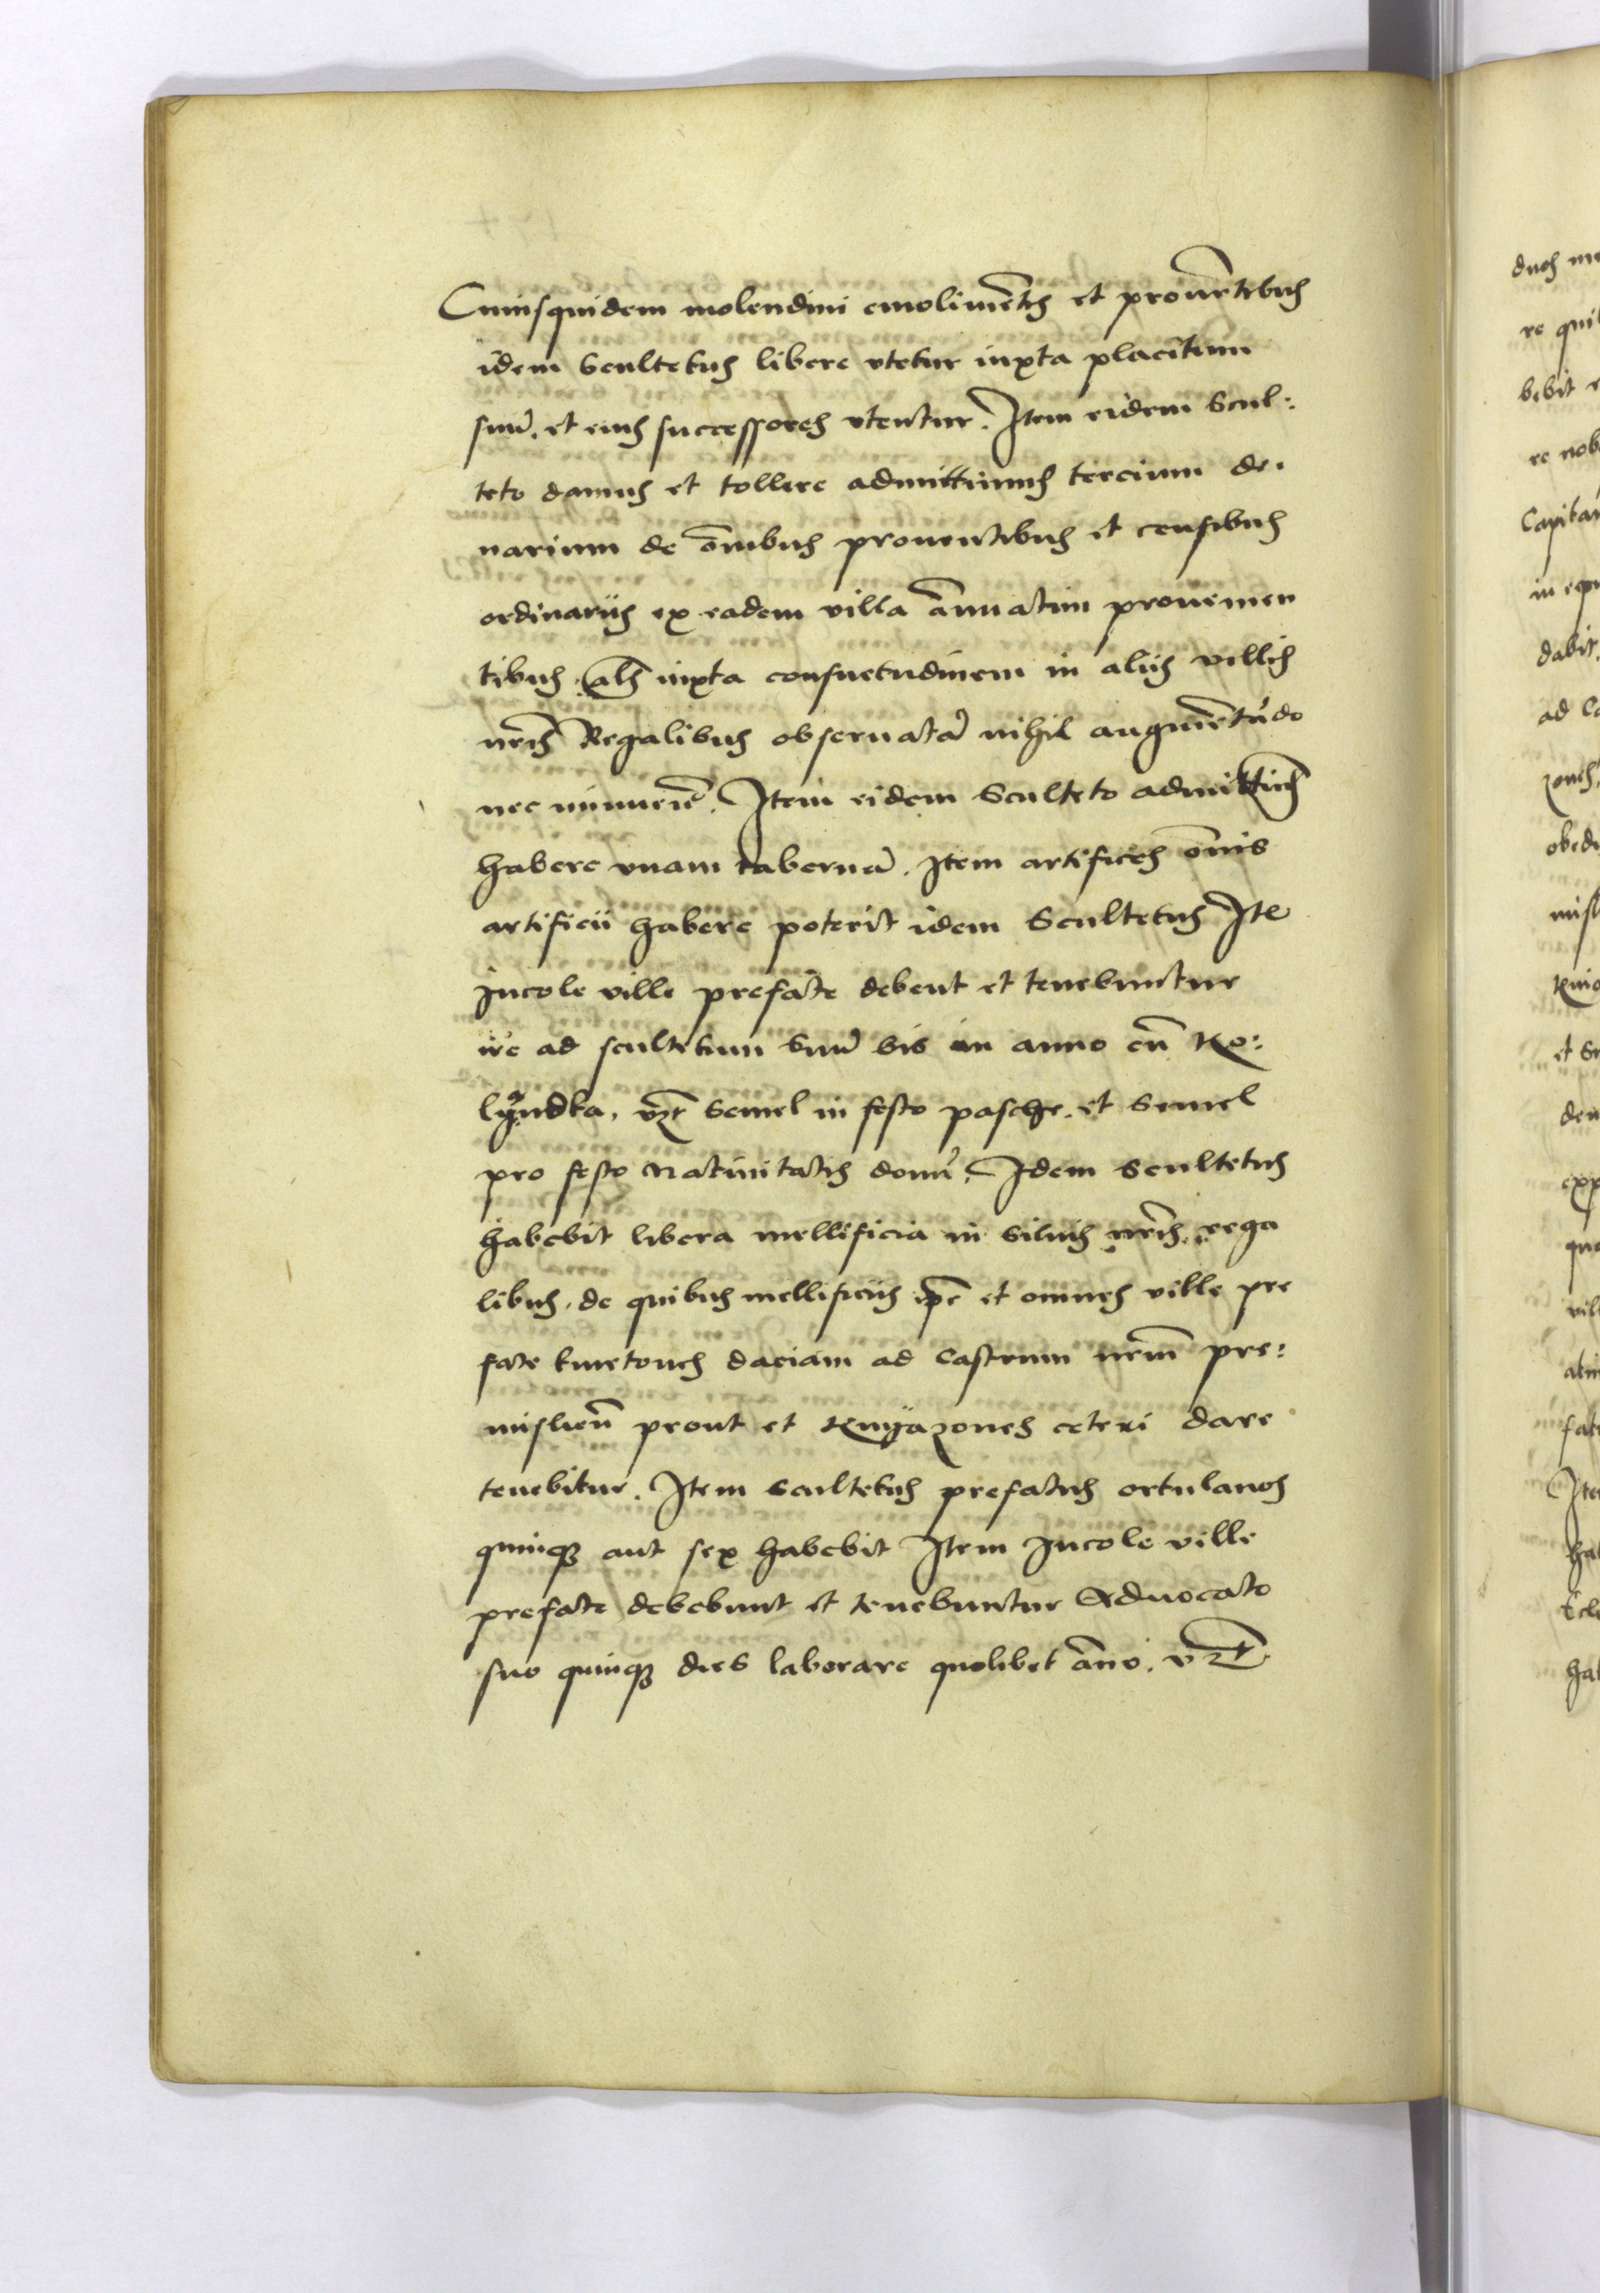 Cuiusquidem molendini emolimētis et prouētibus
idem Scultetus libere vtetur iuxta placitum
suū. et eius successores vtentur. Item eidem Scul:
teto damus et tollere admittimus tercium de.
narium de ōnibus prouentibus et censibus
ordinariis ex eadem villa annuatim prouenien
tibus. als iuxta consuetudinem in aliis villis
nr̄is Regalibus obseruatā nihil augmētādo
nec minuēdo. Item eidem Sculteto admittim9
habere vnam tabernā. Item artifices ōnis
artificii habere poterit idem Scultetus Itē
Incole ville prefate debent et tenebuntur
ire ad scultetum suū bis in anno cū Ko:
lyandka, vz semel in festo pasche. et semel
pro festo Natiuitatis domī. Idem Scultetus
habebit libera mellificia in siluis nr̄is rega
libus. de quibus mellificiis ip̄e et omnes ville pre
fate kmetones daciam ad castrum nr̄m pre:
mislien̄ prout et Knyazones ceteri dare
tenebitur. Item Scultetus prefatus ortulanos
quinqꝫ aut sex habebit Item Incole ville
prefate debebunt et tenebuntur Aduocato
suo quinqꝫ dies laborare quolibet āno. vz

duos
re
bebit
re
in
dabit
ad
et